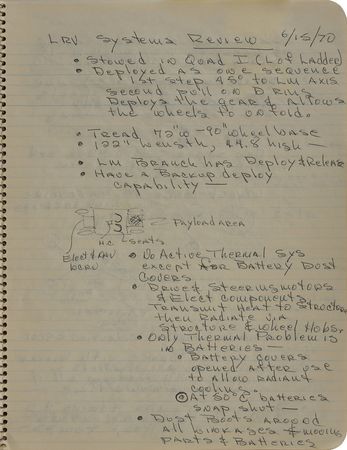 LRV Systems Review 6/15/70
• Stowed in Quad I (L of Ladder)
• Deployed as one sequence
1st step 45° to LM axis
second pull on D rings
Deploys the gear & allows
the wheels to unfold.
• Tread, 72"w - 90" wheel base
• 122" length, 44.8 high —
• LM Branch has Deploy & Release
• Have a Backup deploy
capability —
Payload area
H.C. Seats
Elect & NAV
LCRU
• No Active Thermal Sys
except for Battery Dust
covers
• Drive & Steering motors
& Elect components
Transmit Heat to Structure
then Radiate via
structure & wheel Hubs.
• Only Thermal Problem is
in Batteries —
• Battery covers
opened after use
to allow radiant
cooling.
At 50°C batteries
snap shut —
• Dust Boots around
all linkages & moving
parts & Batteries